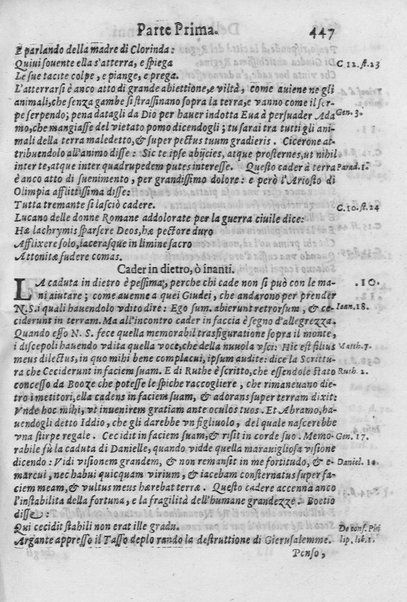 Parte Prima. 447
E parlando della madre di Clorinda:
Quiui souente ella s'atterra, e spiega C. 12. st. 23
Le sue tacite colpe, e piange, e prega.
L'atterrarsi è anco atto di grande abiettione, e viltà, come auiene ne gli
animali, che senza gambe si strassinano sopra la terra, e vanno come il ser-
pe serpendo; pena datagli da Dio per hauer indotta Eua à persuader Ada Gen. 3.
mo, che mangiasse del vietato pomo dicendogli; tu sarai tra tutti gli ani.
mali della terra maledetto, & super pectus tuum gradieris. Cicerone at-
tribuendolo all'animo disse: Sic te ipse abijcies, atque prosternes, ut nihil
inter te, atque inter quadrupedem putes interesse. Questo cader à terra Parad. 1.
è anco atto di suenimento, per grandissimo dolore: e però l'Ariosto di
Olimpia afflittissima disse:
Tutta tremante si lasciò cadere. C. 10. st. 24
Lucano delle donne Romane addolorate per la guerra ciuile dice:
Hæ lachrymis sparsere Deos, hæ pectore duro
Affixere solo, lacerasque in limine sacro
Attonitæ fudere comas.
Cader in dietro, ò inanti.
LA caduta in dietro è pessima, perche chi cade non si può con le ma- .10.
ni aiutare; come auenne a quei Giudei, che andarono per prender
N. S. i quali hauendolo vdito dire: Ego sum. abierunt retrorsum, & ce- Ioan. 18.
ciderunt in terram. Ma all'incontro cader in faccia è segno d'allegrezza.
Quando esso N. S. fece quella memorabil trasfiguratione sopra il monte,
i discepoli hauendo vdita quella voce, che della nuuola vscì: Hic est filius Matth. 7.
meus dilectus, in quo mihi bene complacui, ipsum audite: dice la Scrittu-
ra che Ceciderunt in faciem suam. E di Ruthe è scritto, che essendole stato Ruth. 2.
concesso da Booze che potesse le spiche raccogliere, che rimaneuano die-
tro i metitori, ella cadens in faciem suam, & adorans super terram dixit:
Vnde hoc mihi, vt inuenirem gratiam ante oculos tuos. Et Abramo, ha-
uendogli detto Iddio, che gli darebbe vn figliuolo, del quale nascerebbe
vna stirpe regale. Cecidit in faciem suam, & risit in corde suo. Memo- Gen. 17.
rabile fù la caduta di Danielle, quando vidde quella marauigliosa visione
dicendo: Vidi visionem grandem, & non remansit in me fortitudo, & e- Daniel. 10
marcui, nec habui quicquam virium, & iacebam consternatus super fa-
ciem meam, & vultus meus hærebat terræ. Questo cadere accenna anco
l'instabilità della fortuna, e la fragilità dell'humane grandezze. Boetio
disse:
Qui cecidit stabili non erat ille gradu. De consf. Phi
Argante appresso il Tasso deplorando la destruttione di Gierusalemme. lip. lib. 1.
Penso,